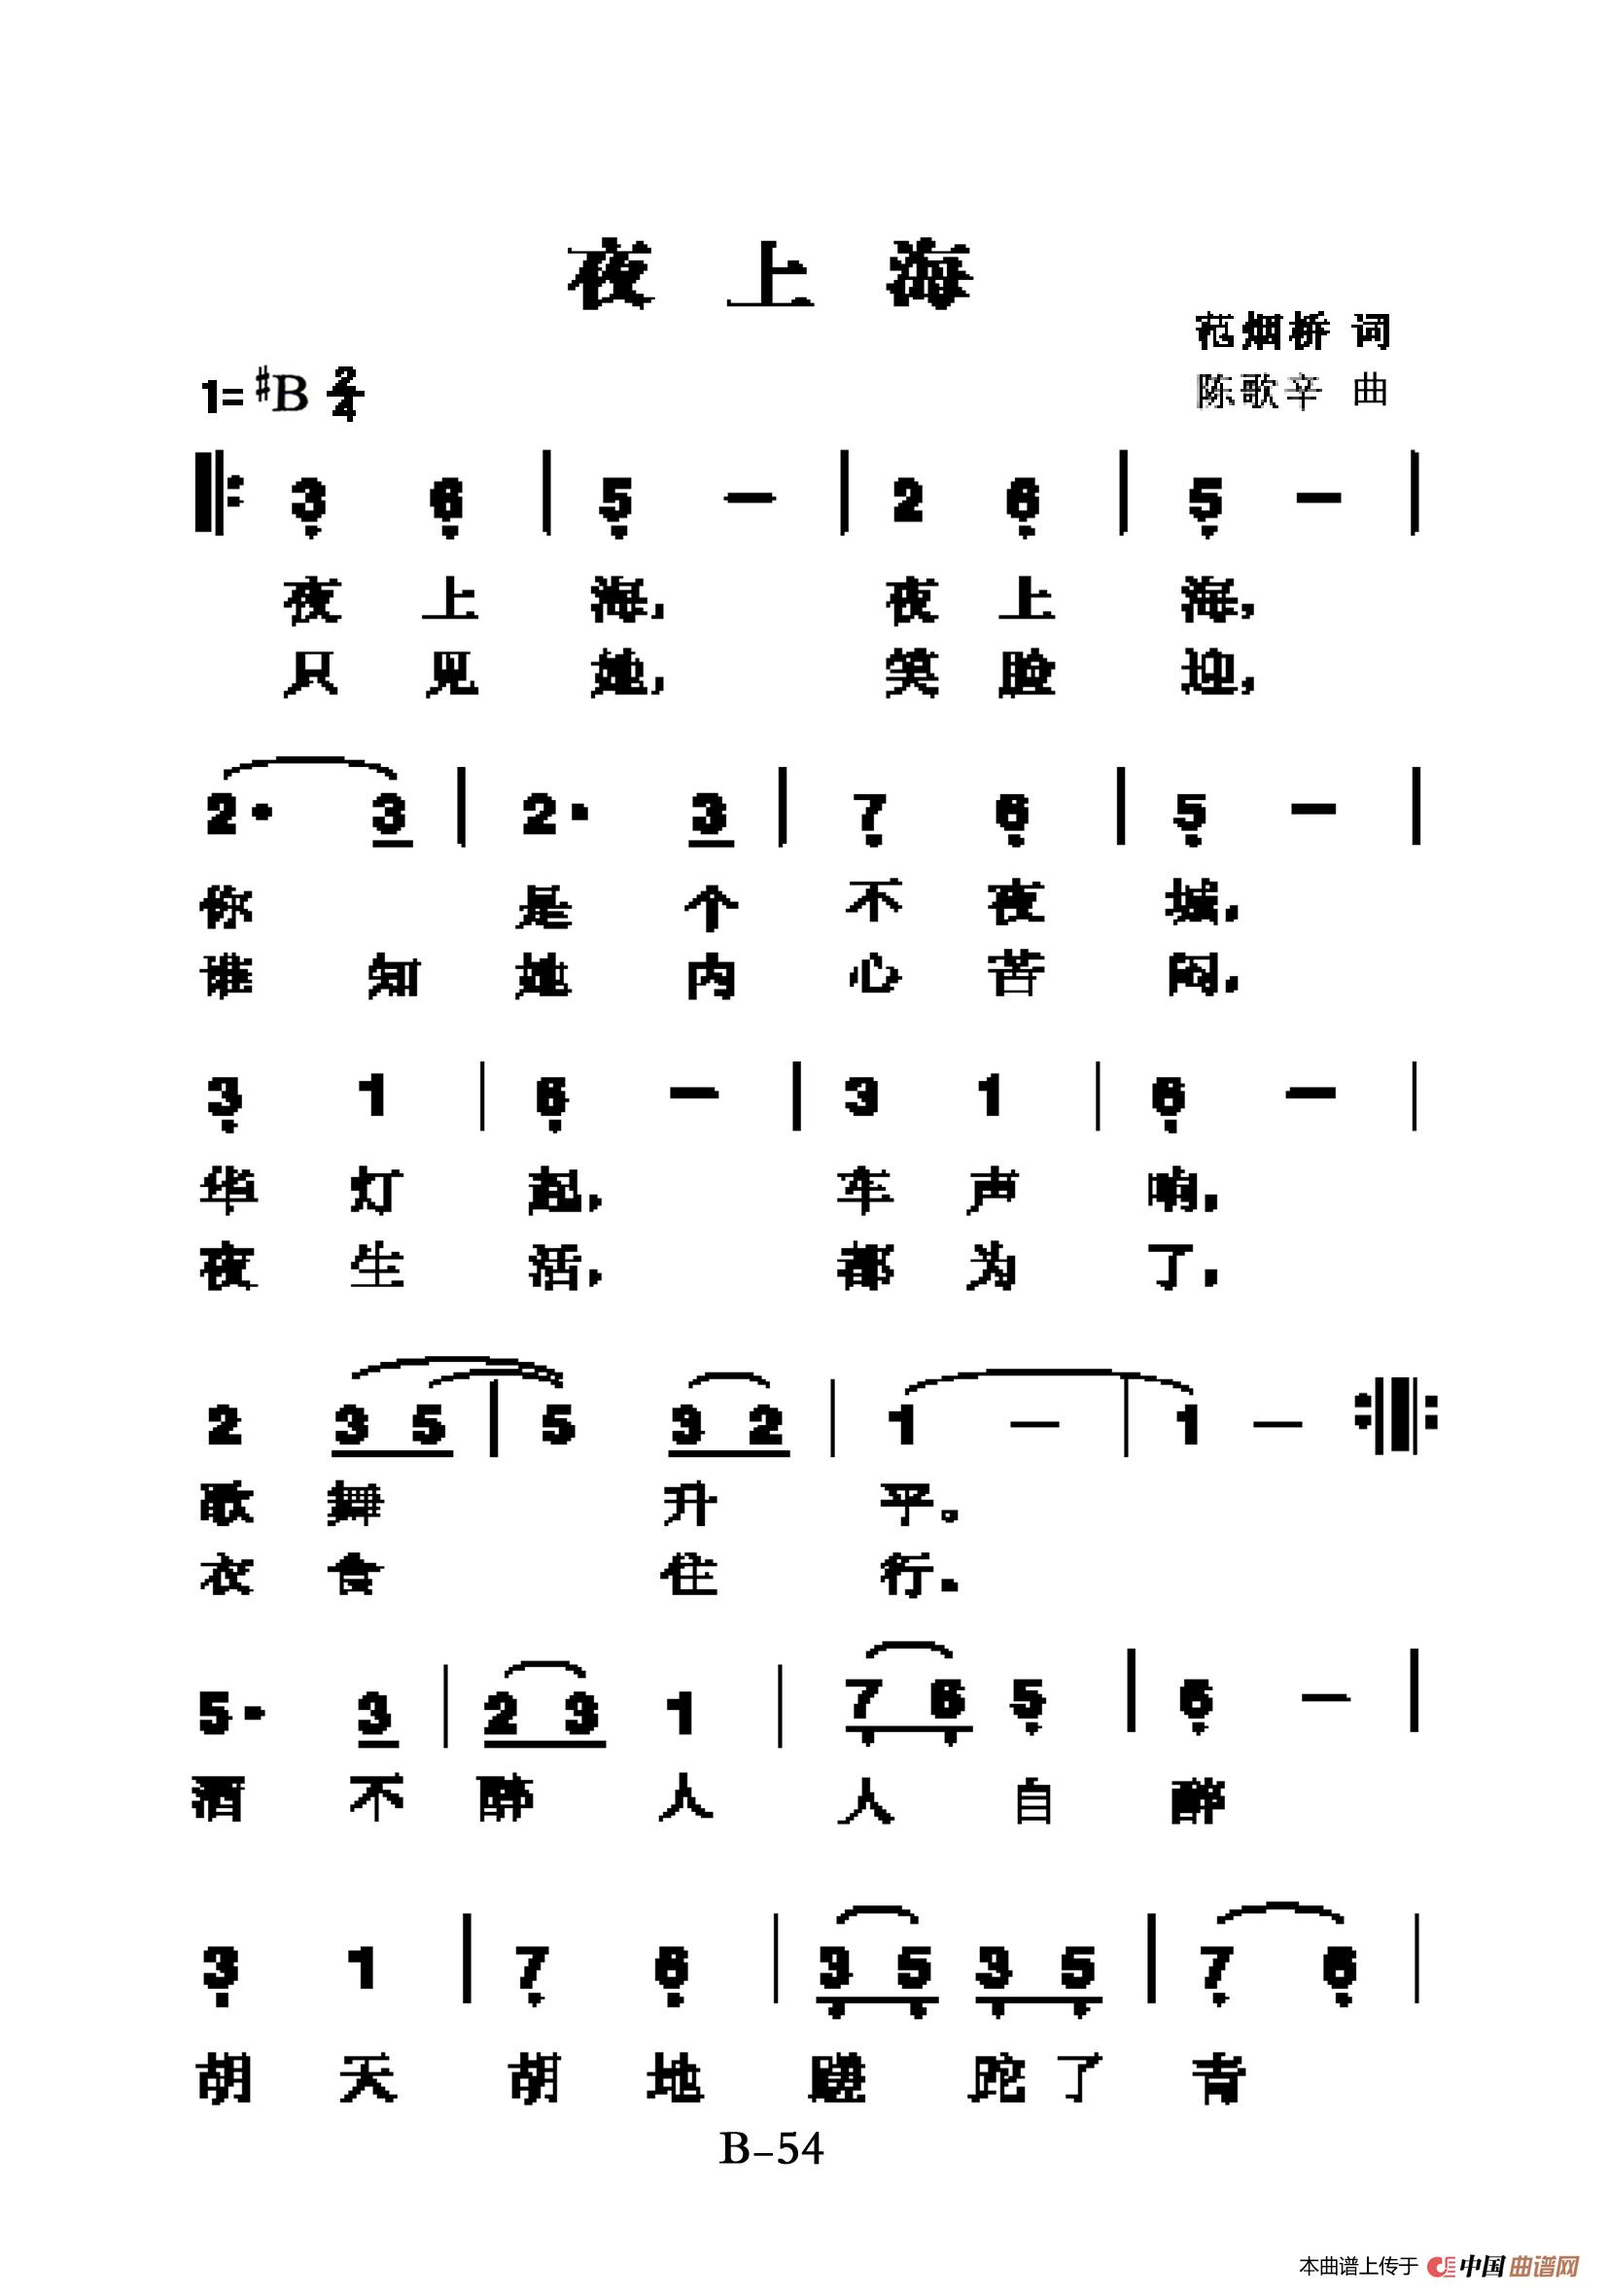 夜 上 海
范烟桥 词
1= #B 2/4
陈歌辛 曲
‖: 3 6 | 5 — | 2 6 | 5 — |
夜 上 海, 夜 上 海,
只 见 她, 笑 脸 迎,
2· 3 | 2· 3 | 7 6 | 5 — |
你 是 个 不 夜 城,
谁 知 她 内 心 苦 闷,
3 1 | 6 — | 3 1 | 6 — |
华 灯 起, 车 声 响,
夜 生 活, 都 为 了,
2 3 5 | 5 3 2 | 1 — | 1 — :‖:
歌 舞 升 平。
衣 食 住 行.
5· 3 | 2 3 1 | 7 6 5 | 6 — |
酒 不 醉 人 人 自 醉
3 1 | 7 6 | 3 5 3 5 | 7 6 |
胡 天 胡 地 蹉 跎 了 青
B-54
本曲谱上传于 中国曲谱网